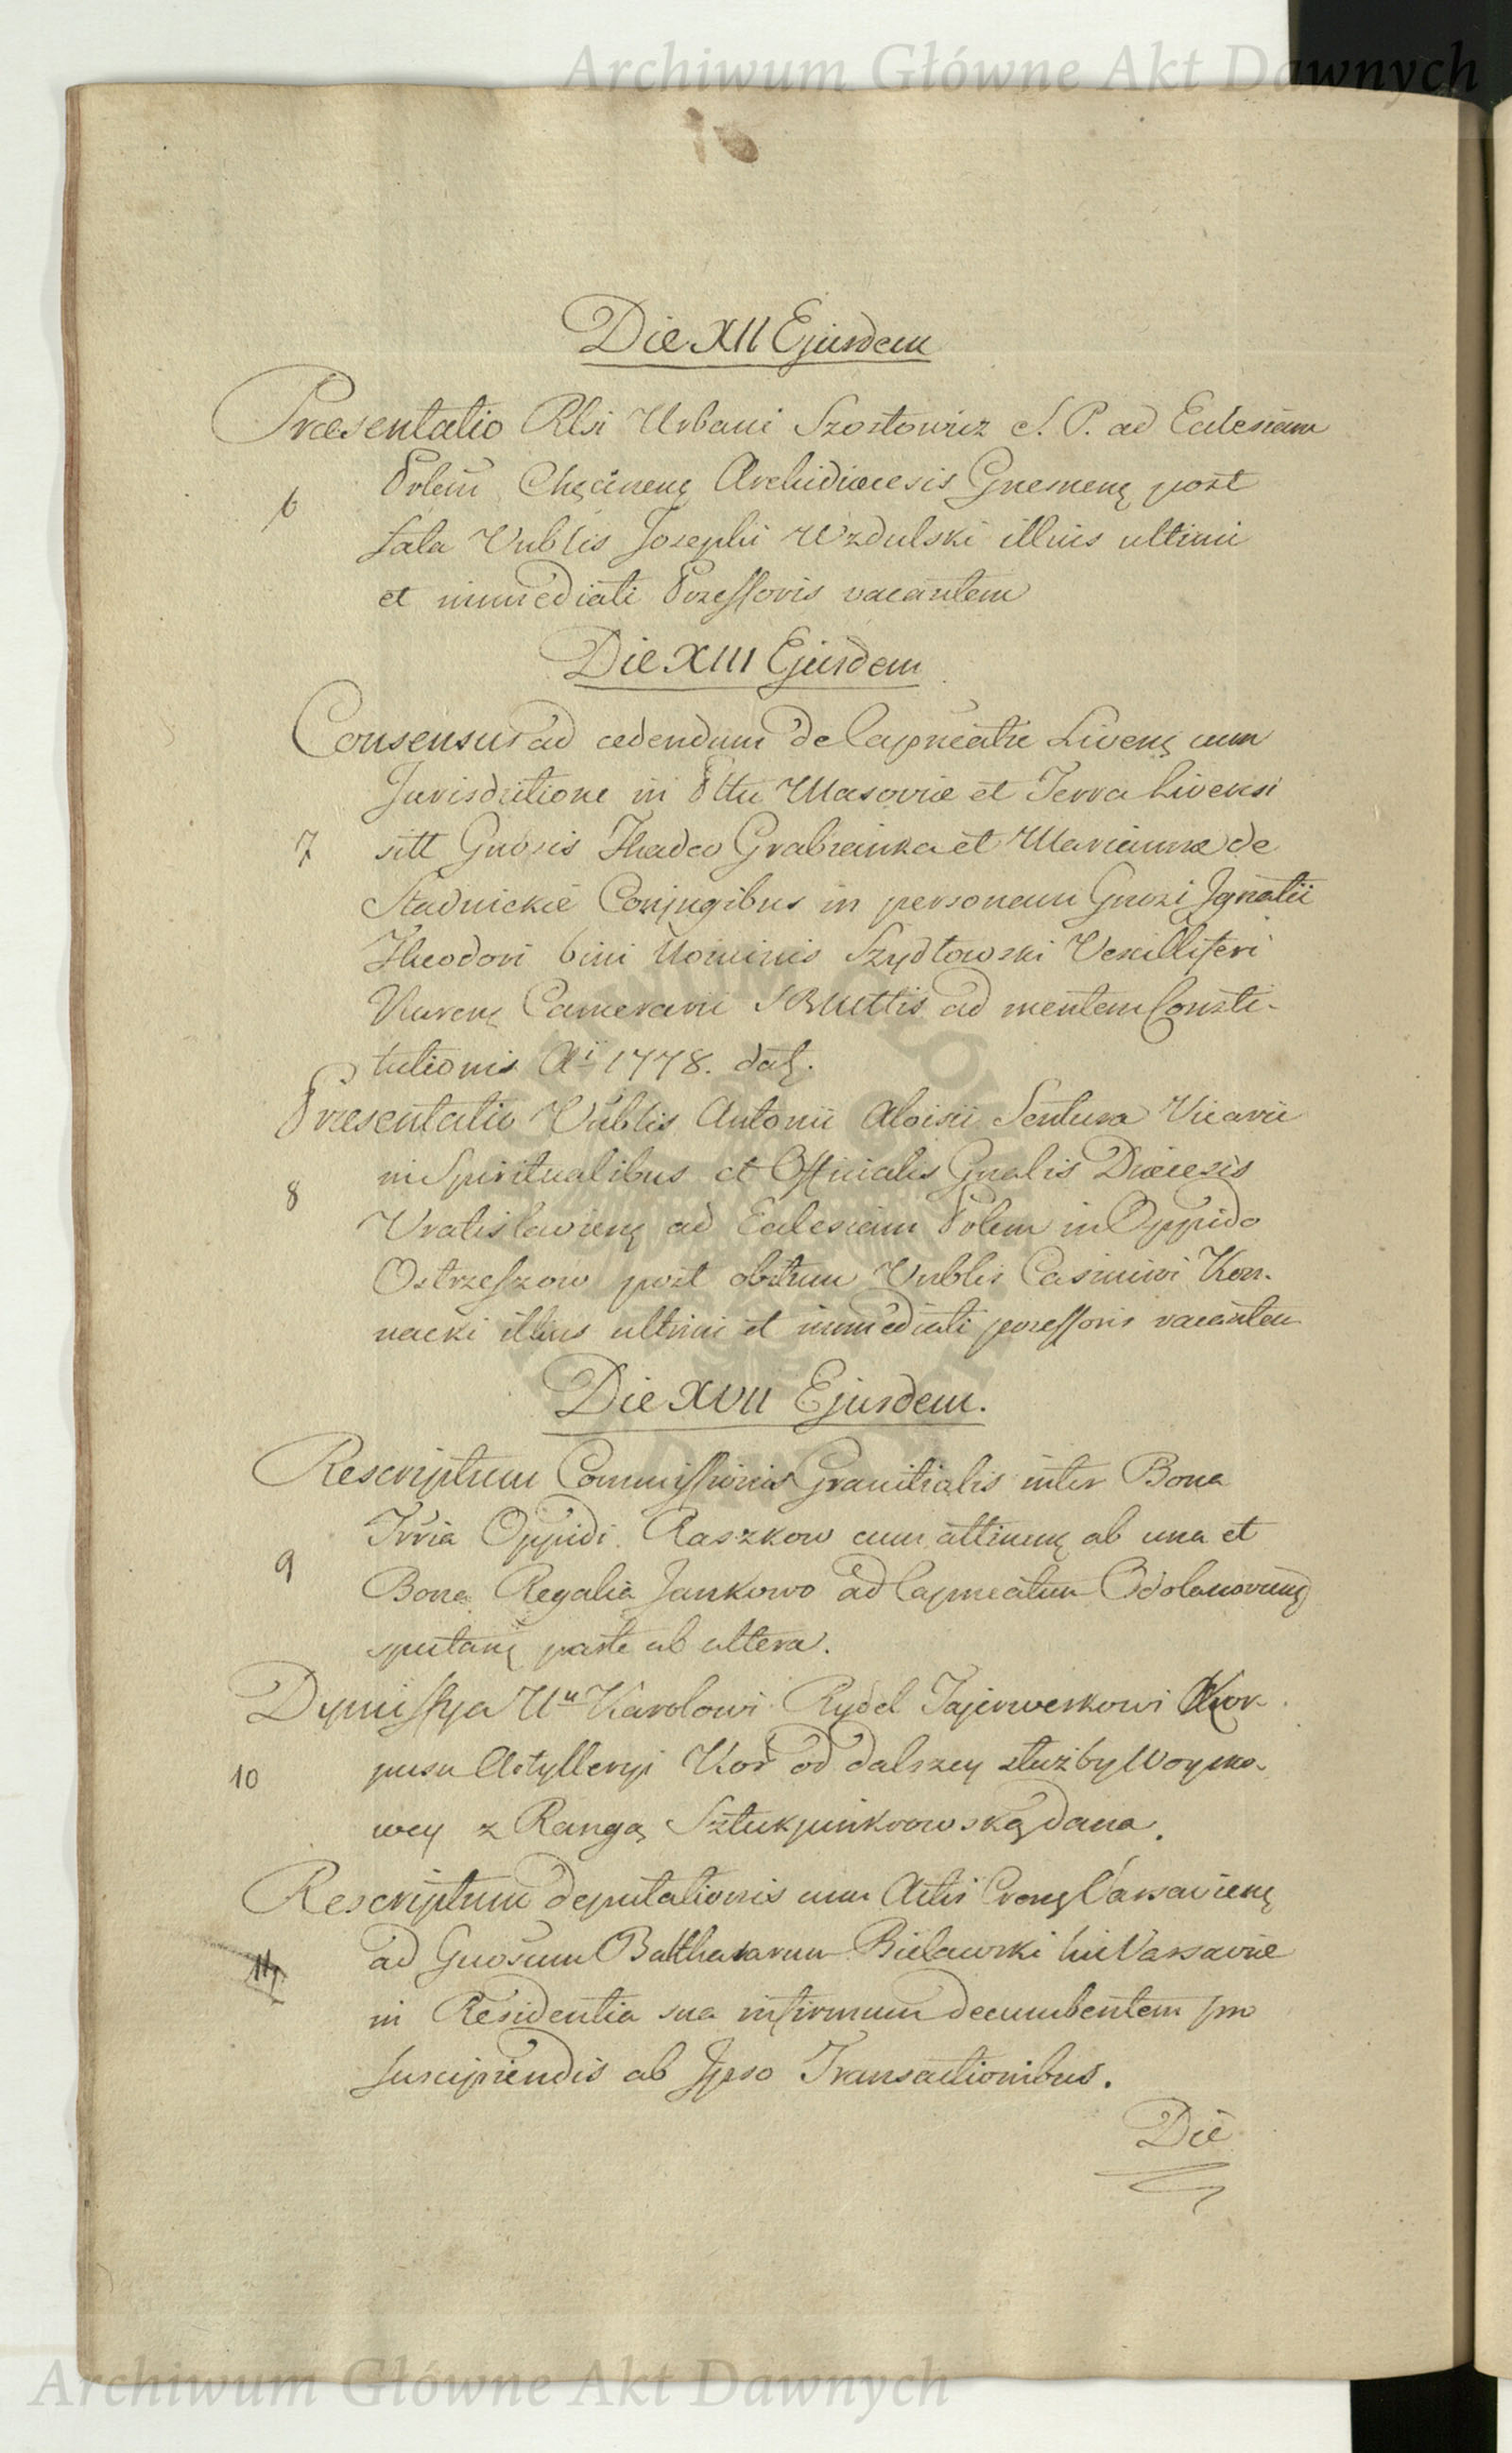 Archiwum Główne Akt Dawnych
Die XII Ejusdem
Præsentatio Rlsi Urbani Szostowicz S. P. ad Eclesiam
6 Prlem Chęcinenę Archidiœcesis Gnesnenę post
fata Vnblis Josephi Wzdulski illius ultimi
et immediati Possessoris vacantem
Die XIII Ejusdem
Consensus ad cedendum de Capneatu Livenę cum
Jurisdictione in Pttu Masoviæ et Terra Livensi
7 sitt Gnosis Thadeo Grabianka et Marianna de
Stadnickie Conjugibus in personam Gnosi Ignatii
Theodori bini Nominis Szydłowski Vexilliferi
Nurenę Camerarii SRMttis ad mentem Consti-
tutionis Ai 1778. datę.
Præsentatio Vnblis Antonii Aloisii Sentura Vicarii
8 in Spiritualibus et Officialis Gnalis Diœcesis
Vratislavienę ad Eclesiam Prlem in Oppido
Ostrzeszow post obitum Vnblis Casimiri Kor-
nacki illius ultimi et immediati possessoris vacantem
Die XVII Ejusdem.
Rescriptum Commissionis Granitialis inter Bona
9 Trria Oppidi Raszkow cum attinenę ab una et
Bona Regalia Jankowo ad Capneatum Odolanovienę
spectanę parte ab altera.
Dymissya Un Karolowi Rydel Fajerwerkowi Kor
10 pusu Artylleryi Kor od dalszey służby Woysko-
wey z Rangą Sztukjunkrowską dana.
Rescriptum deputationis cum Actis Cronę Varsavienę
11 ad Gnosum Balthasarum Bielawski hic Varsaviæ
in Residentia sua infirmum decumbentem pro
suscipiendis ab Ipso Transactionibus.
Die
Archiwum Główne Akt Dawnych